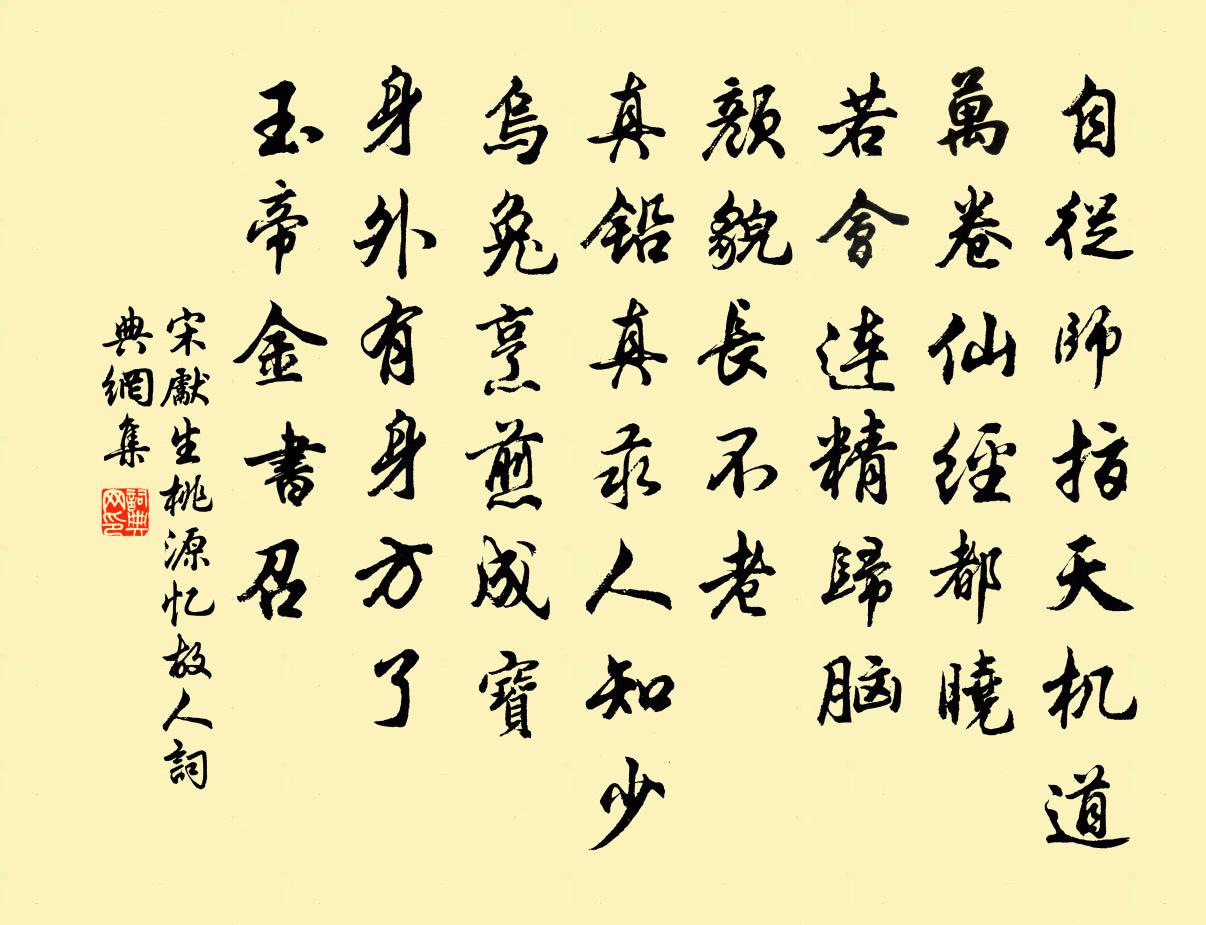 自從師指天机道
萬卷仙經都曉
若會連精歸脑
顏貌長不老
真鉛真汞人知少
烏兔烹煎成寶
身外有身方了
玉帝金書召
宋獻生桃源忆故人詞
典網集
詞典网印